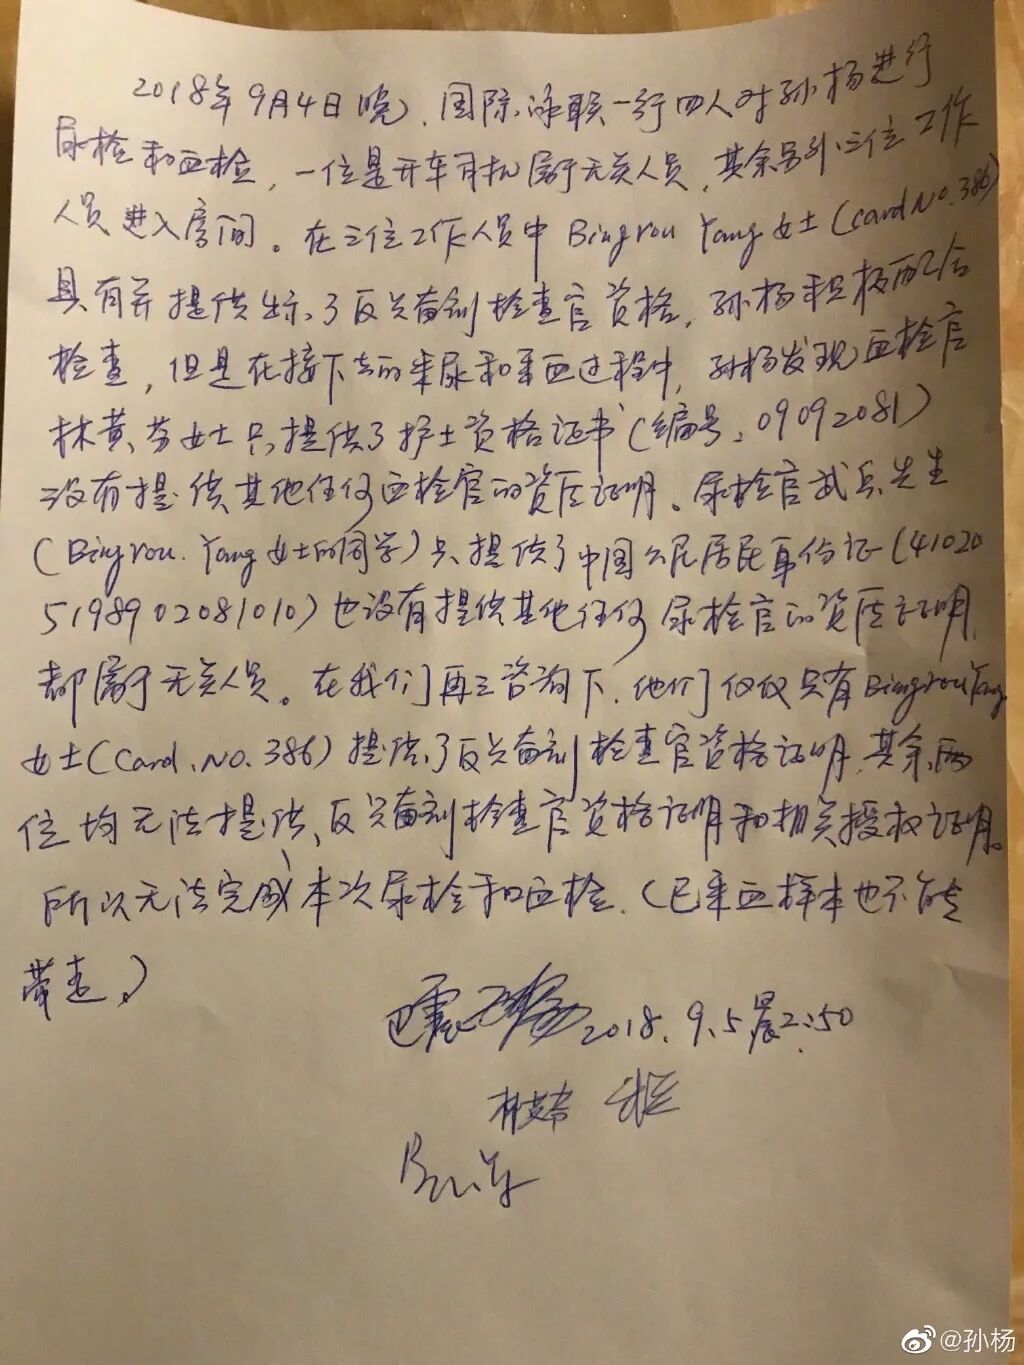 2018年9月4日晚、国际泳联一行四人对孙杨进行
尿检和血检，一位是开车司机属于无关人员，其余另外三位工作
人员进入房间。在三位工作人员中Bingrou Yang女士（card No.386）
具有并提供出示了反兴奋剂检查官资格，孙杨积极配合
检查，但是在接下去的采尿和采血过程中，孙杨发现血检官
林黄芬女士只提供了护士资格证书（编号：09092081）
没有提供其他任何血检官的资质证明。尿检官武兵先生
（Bingrou.Yang女士的同学）只提供了中国公民居民身份证（41020
5198902081010）也没有提供其他任何尿检官的资质证明，
都属于无关人员。在我们再三咨询下，他们仅仅只有Bingrou Yang
女士（Card.No.386）提供了反兴奋剂检查官资格证明，其余两
位均无法提供反兴奋剂检查官资格证明和相关授权证明。
所以无法完成本次尿检和血检.（已采血样本也不能
带走。）
巴震 2018.9.5晨2:50
@孙杨